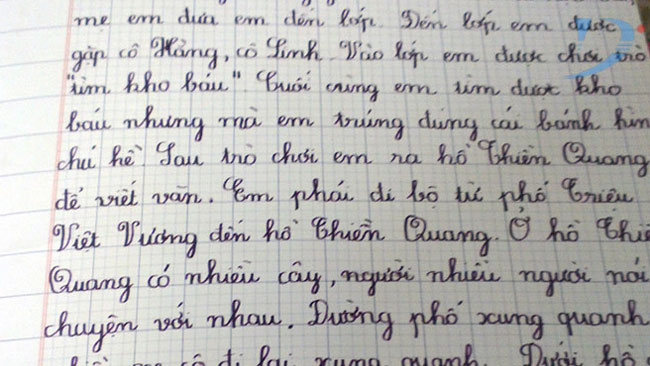 mẹ em đưa em đến lớp. Đến lớp em được
gặp cô Hằng, cô Linh. Vào lớp em được chơi trò
"tìm kho báu". Cuối cùng em tìm được kho
báu nhưng mà em trúng đúng cái bánh hìn
chú hề. Sau trò chơi em ra hồ Thiền Quang
để viết văn. Em phải đi bộ từ phố Triệu
Việt Vương đến hồ Thiền Quang. Ở hồ Thiề
Quang có nhiều cây, người nhiều người nói
chuyện với nhau. Đường phố xung quanh
đi lại xung quanh. Dưới hồ